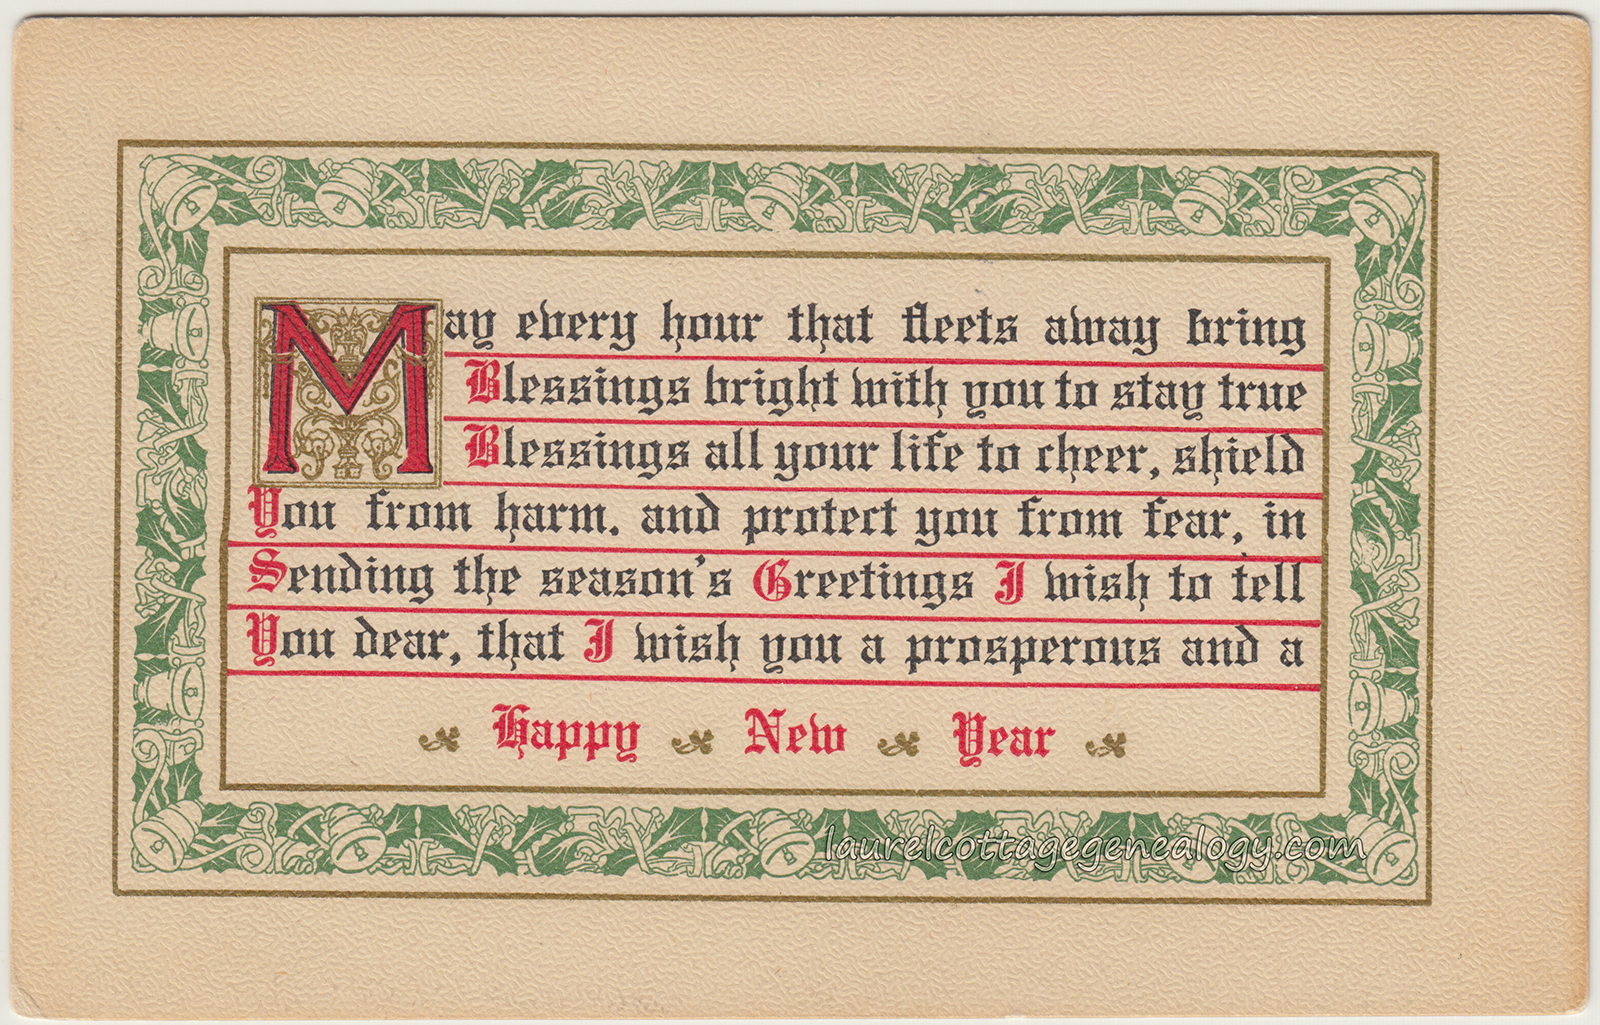 May every hour that fleets away bring
Blessings bright with you to stay true
Blessings all your life to cheer, shield
You from harm. and protect you from fear, in
Sending the season's Greetings I wish to tell
You dear, that I wish you a prosperous and a
Happy New Year
laurelcottagegenealogy.com